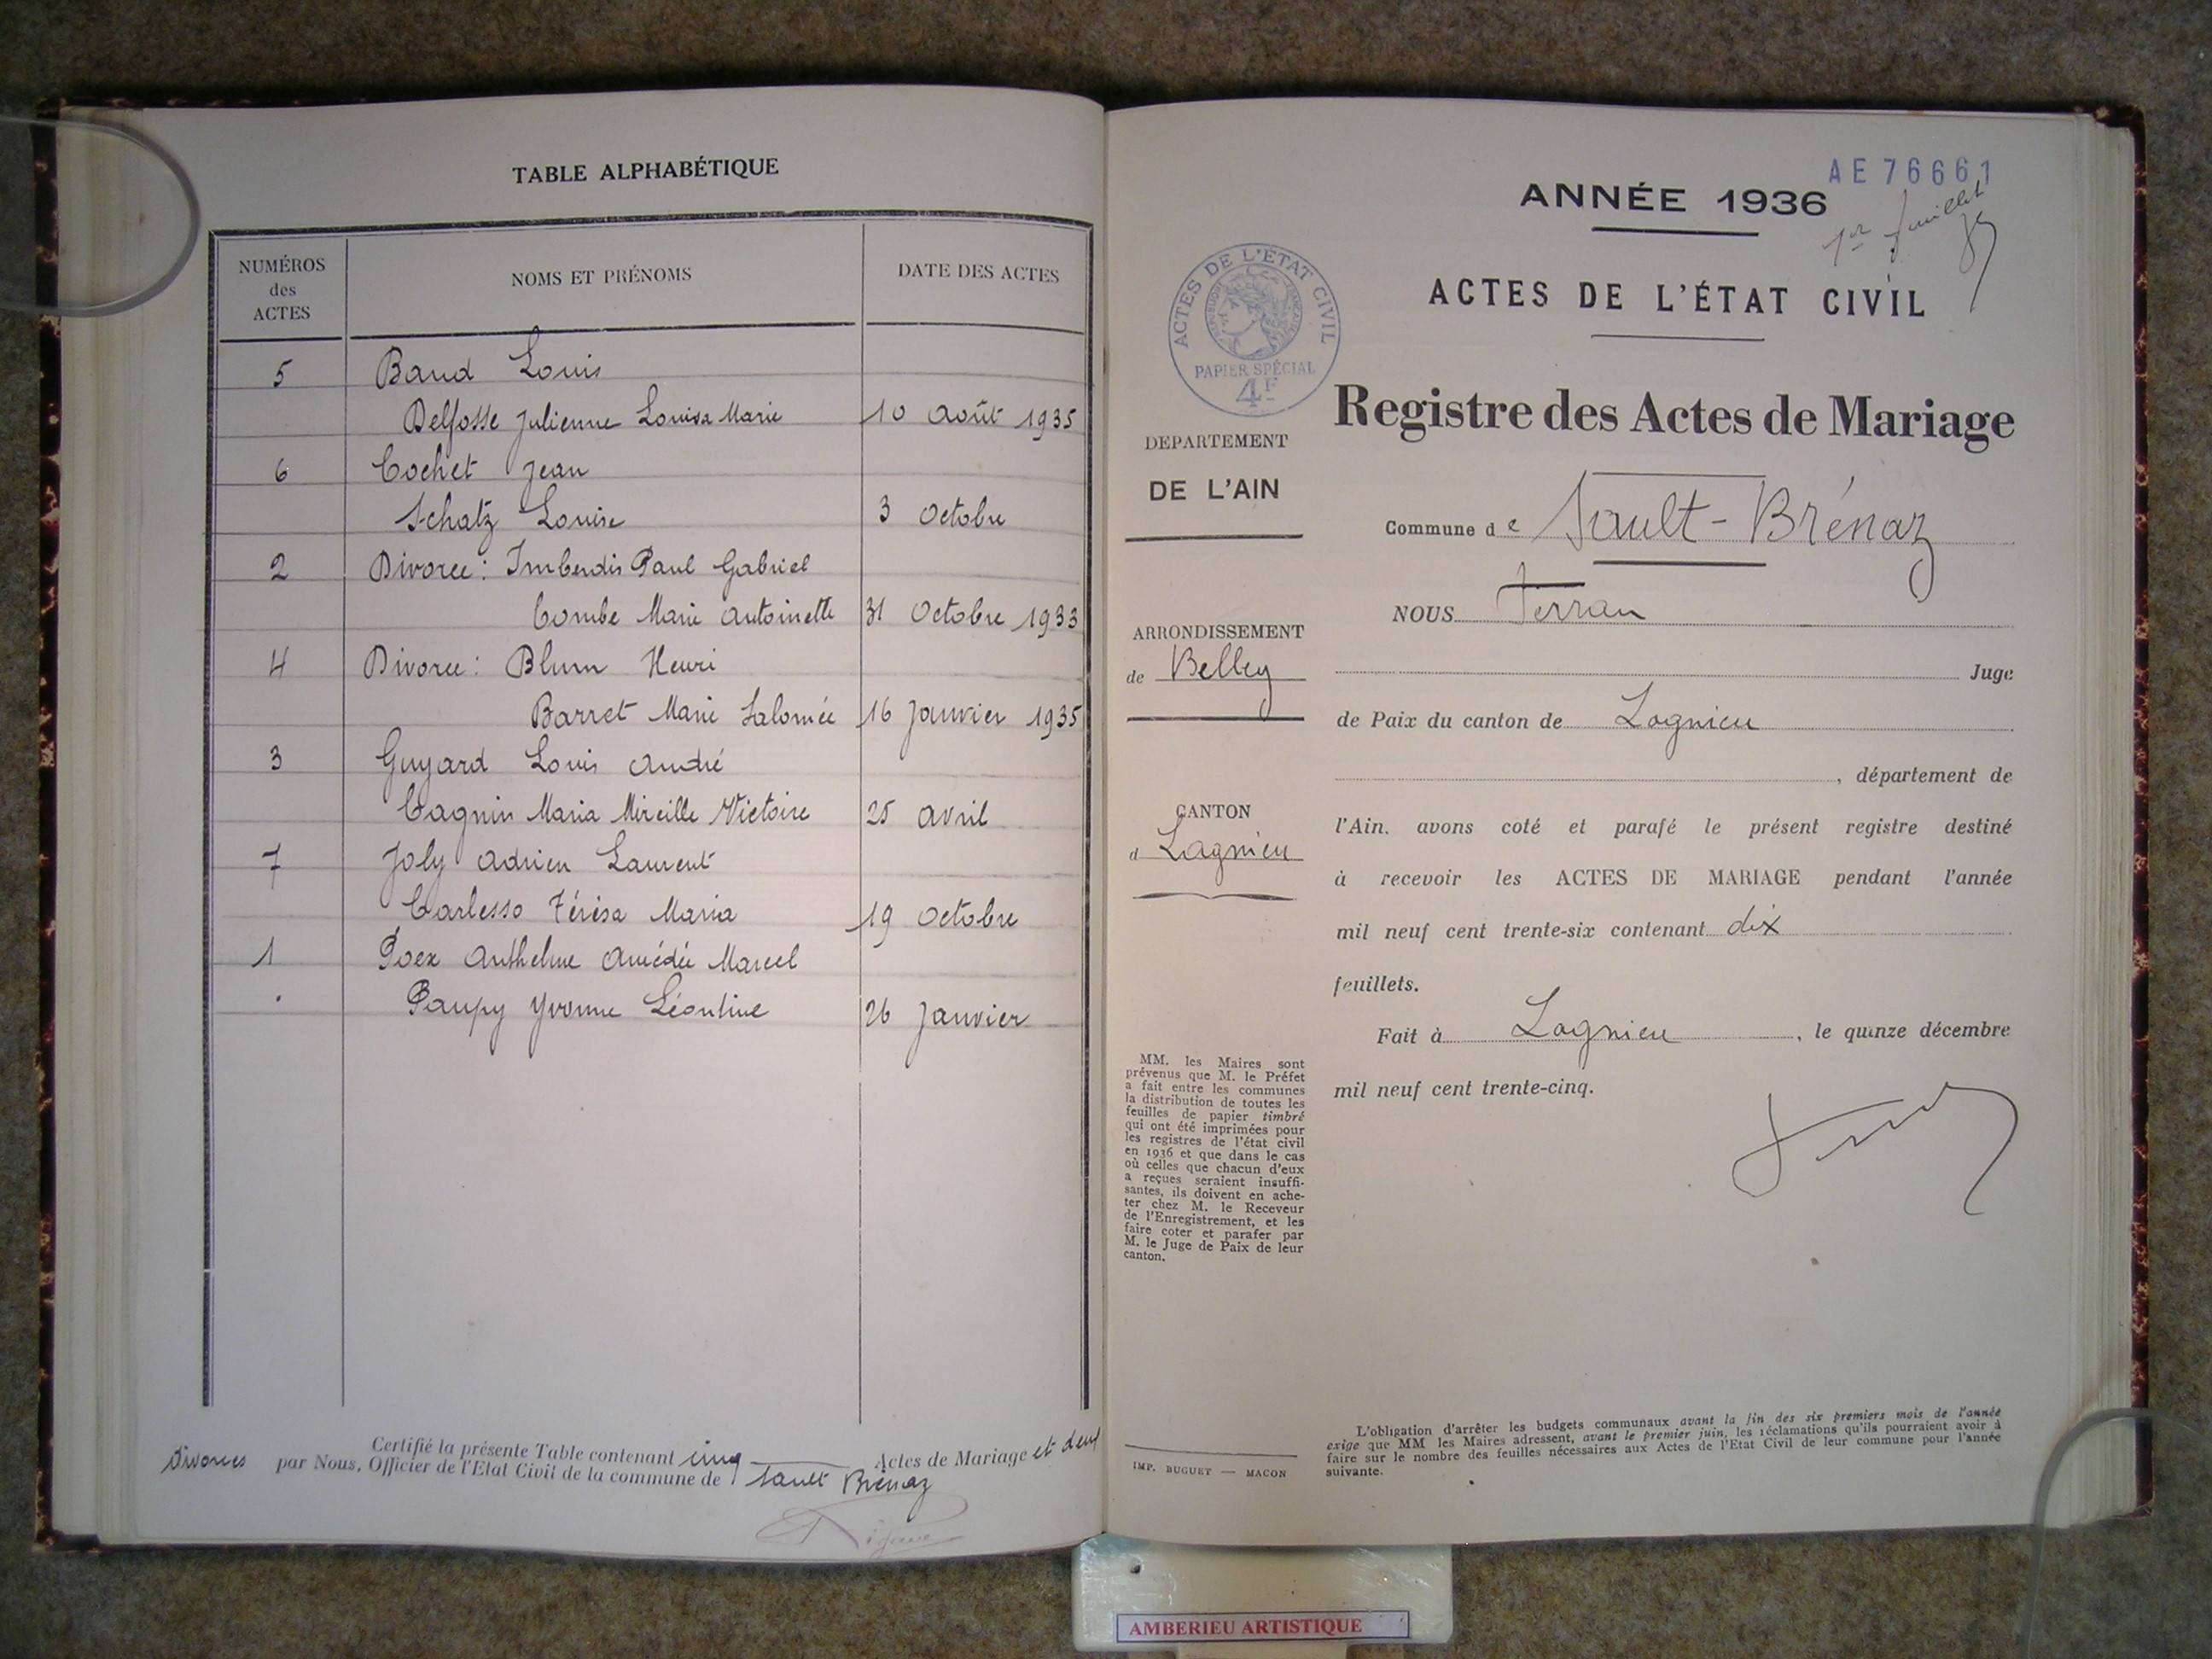 TABLE ALPHABÉTIQUE
NUMÉROS des ACTES
NOMS ET PRÉNOMS
DATE DES ACTES
5 Baud Louis
Delfosse Julienne Louisa Marie 10 Août 1935
6 Cochet Jean
Schatz Louise 3 Octobre
2 Divorce : Imberdis Paul Gabriel
Combe Marie Antoinette 31 Octobre 1933
4 Divorce : Blum Henri
Barret Marie Salomée 16 Janvier 1935
3 Guyard Louis André
Cagnin Maria Mireille Victoire 25 Avril
7 Joly Adrien Laurent
Carlesso Térésa Maria 19 Octobre
1 Poex Anthelme Amédée Marcel
Paupy Yvonne Léontine 26 Janvier
Certifié la présente Table contenant cinq Actes de Mariage et deux
Divorces par Nous, Officier de l'Etat Civil de la commune de Sault Brénaz
AE 76661
ANNÉE 1936
1er feuillet
ACTES DE L'ÉTAT CIVIL
ACTES DE L'ÉTAT CIVIL
PAPIER SPÉCIAL
4F
Registre des Actes de Mariage
DEPARTEMENT
DE L'AIN
Commune de Sault-Brénaz
NOUS Ferran
ARRONDISSEMENT
de Belley
Juge
de Paix du canton de Lagnieu
, département de
CANTON
d Lagnieu
l'Ain, avons coté et parafé le présent registre destiné
à recevoir les ACTES DE MARIAGE pendant l'année
mil neuf cent trente-six contenant dix
feuillets.
Fait à Lagnieu, le quinze décembre
mil neuf cent trente-cinq.
MM. les Maires sont
prévenus que M. le Préfet
a fait entre les communes
la distribution de toutes les
feuilles de papier timbré
qui ont été imprimées pour
les registres de l'état civil
en 1936 et que dans le cas
où celles que chacun d'eux
a reçues seraient insuffi-
santes, ils doivent en ache-
ter chez M. le Receveur
de l'Enregistrement, et les
faire coter et parafer par
M. le Juge de Paix de leur
canton.
IMP. BUGUET — MACON
L'obligation d'arrêter les budgets communaux avant la fin des six premiers mois de l'année
exige que MM les Maires adressent, avant le premier juin, les réclamations qu'ils pourraient avoir à
faire sur le nombre des feuilles nécessaires aux Actes de l'Etat Civil de leur commune pour l'année
suivante.
AMBERIEU ARTISTIQUE